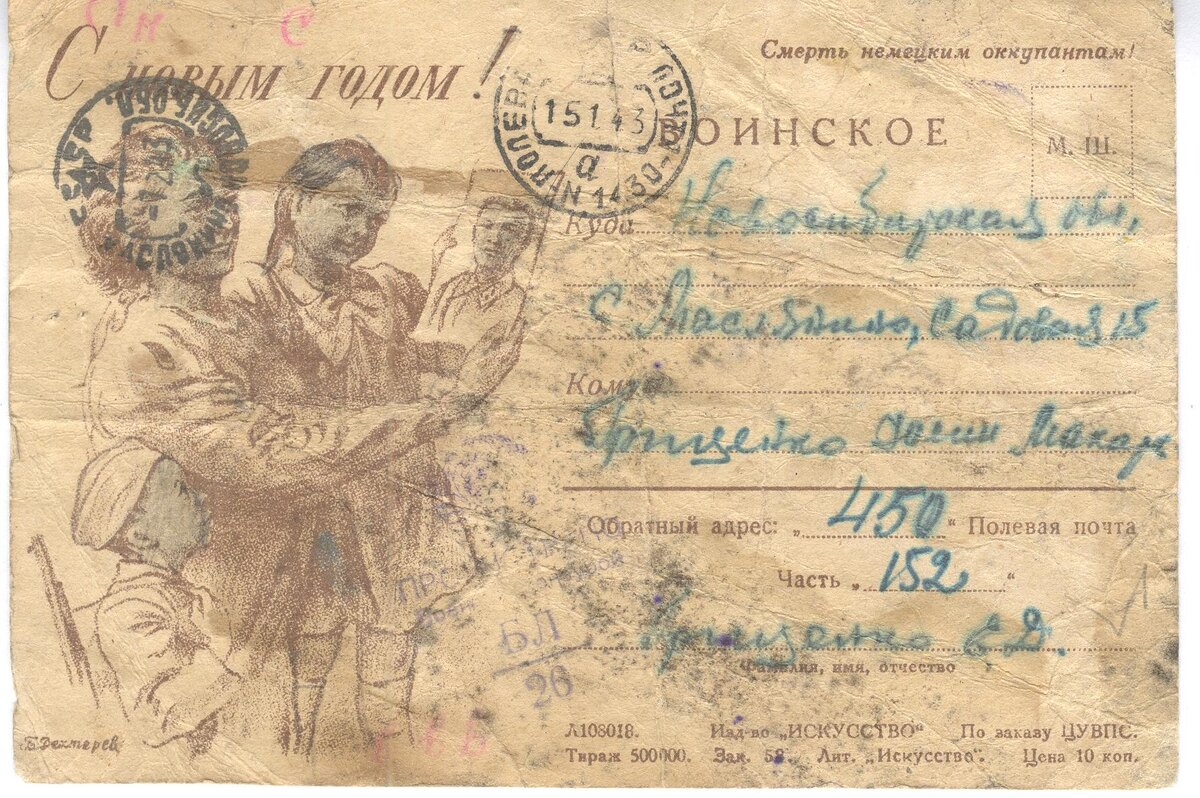 С НОВЫМ ГОДОМ!
Смерть немецким оккупантам!
ВОИНСКОЕ
М. Ш.
ПОЛЕВАЯ ПОЧТА
15 1 43
а
N 1430
СССР
2 43
Куда Новосибирская обл,
с Маслянино, Садовая 15
Кому
Грищенко Макар
Обратный адрес: „450“ Полевая почта
Часть „152“
Грищенко Е Д.
Фамилия, имя, отчество
БЛ
26
Б. Дехтерев
А108018. Изд-во „ИСКУССТВО“ По заказу ЦУВПС.
Тираж 500000. Зак. 58. Лит. „Искусство“. Цена 10 коп.